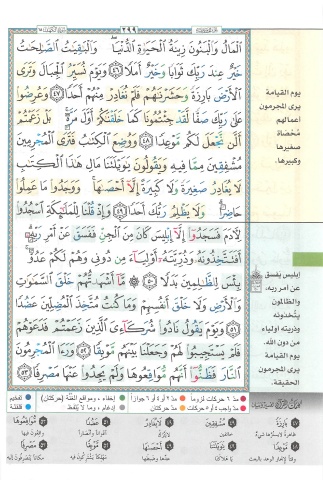 ٢٩٩
ٱلْمَالُ وَٱلْبَنُونَ زِينَةُ ٱلْحَيَوٰةِ ٱلدُّنْيَا ۖ وَٱلْبَٰقِيَٰتُ ٱلصَّٰلِحَٰتُ
خَيْرٌ عِندَ رَبِّكَ ثَوَابًا وَخَيْرٌ أَمَلًا ﴿٤٦﴾ وَيَوْمَ نُسَيِّرُ ٱلْجِبَالَ وَتَرَى
ٱلْأَرْضَ بَارِزَةً وَحَشَرْنَٰهُمْ فَلَمْ نُغَادِرْ مِنْهُمْ أَحَدًا ﴿٤٧﴾ وَعُرِضُوا۟
عَلَىٰ رَبِّكَ صَفًّا لَّقَدْ جِئْتُمُونَا كَمَا خَلَقْنَٰكُمْ أَوَّلَ مَرَّةٍۭ ۚ بَلْ زَعَمْتُمْ
أَلَّن نَّجْعَلَ لَكُم مَّوْعِدًا ﴿٤٨﴾ وَوُضِعَ ٱلْكِتَٰبُ فَتَرَى ٱلْمُجْرِمِينَ
مُشْفِقِينَ مِمَّا فِيهِ وَيَقُولُونَ يَٰوَيْلَتَنَا مَالِ هَٰذَا ٱلْكِتَٰبِ
لَا يُغَادِرُ صَغِيرَةً وَلَا كَبِيرَةً إِلَّآ أَحْصَىٰهَا ۚ وَوَجَدُوا۟ مَا عَمِلُوا۟
حَاضِرًا ۗ وَلَا يَظْلِمُ رَبُّكَ أَحَدًا ﴿٤٩﴾ وَإِذْ قُلْنَا لِلْمَلَٰٓئِكَةِ ٱسْجُدُوا۟
لِءَادَمَ فَسَجَدُوٓا۟ إِلَّآ إِبْلِيسَ كَانَ مِنَ ٱلْجِنِّ فَفَسَقَ عَنْ أَمْرِ رَبِّهِۦٓ ۗ
أَفَتَتَّخِذُونَهُۥ وَذُرِّيَّتَهُۥٓ أَوْلِيَآءَ مِن دُونِى وَهُمْ لَكُمْ عَدُوٌّۢ ۚ
بِئْسَ لِلظَّٰلِمِينَ بَدَلًا ﴿٥٠﴾ ۞ مَّآ أَشْهَدتُّهُمْ خَلْقَ ٱلسَّمَٰوَٰتِ
وَٱلْأَرْضِ وَلَا خَلْقَ أَنفُسِهِمْ وَمَا كُنتُ مُتَّخِذَ ٱلْمُضِلِّينَ عَضُدًا
﴿٥١﴾ وَيَوْمَ يَقُولُ نَادُوا۟ شُرَكَآءِىَ ٱلَّذِينَ زَعَمْتُمْ فَدَعَوْهُمْ
فَلَمْ يَسْتَجِيبُوا۟ لَهُمْ وَجَعَلْنَا بَيْنَهُم مَّوْبِقًا ﴿٥٢﴾ وَرَءَا ٱلْمُجْرِمُونَ
ٱلنَّارَ فَظَنُّوٓا۟ أَنَّهُم مُّوَاقِعُوهَا وَلَمْ يَجِدُوا۟ عَنْهَا مَصْرِفًا ﴿٥٣﴾
يوم القيامة
يرى المجرمون
أعمالهم
مُحْصَاة
صغيرها
وكبيرها.
إبليس يفسق
عن أمر ربه،
والظالمون
يتخذونه
وذريته أولياء
من دون الله.
يوم القيامة
يرى المجرمون
الحقيقة.